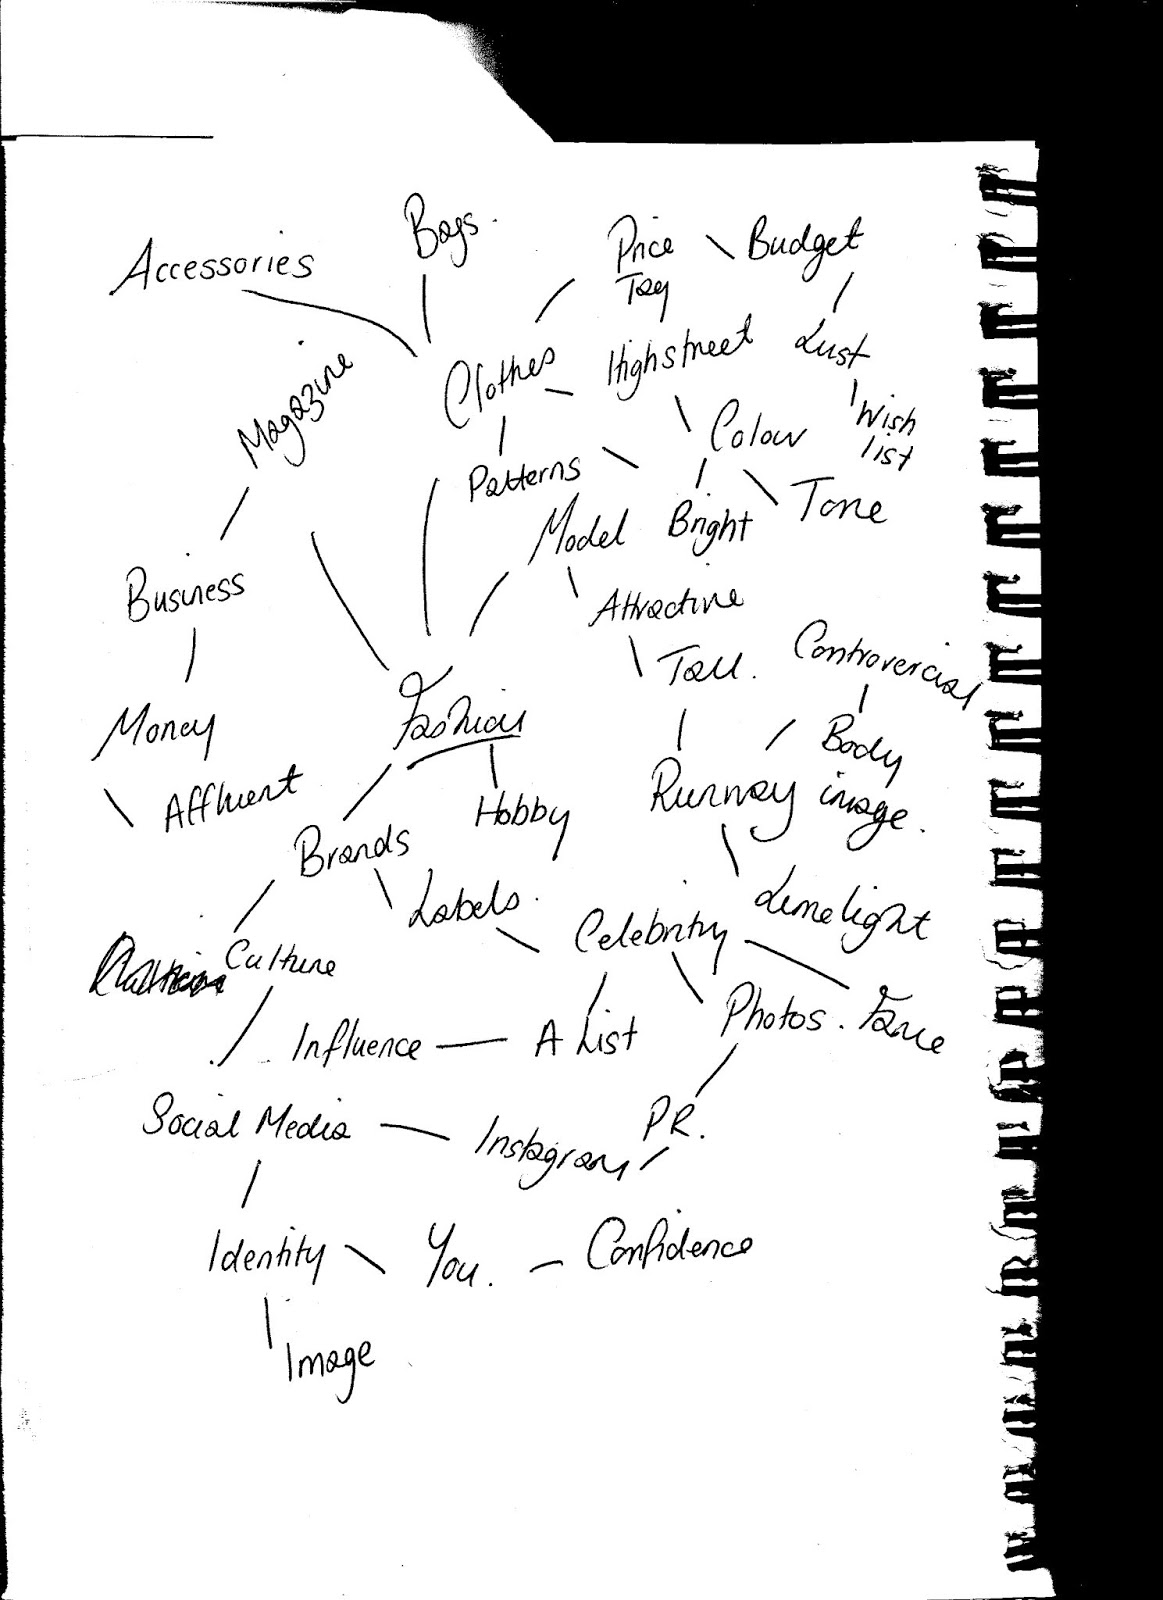 Bags.
Accessories
Price
Tag
Budget
Magazine
Clothes
Highstreet
Lust
Wish
list
Colour
Patterns
Tone
Model
Bright
Business
Attractive
Tall.
Controvercial
Money
Fashion
Body
image.
Affluent
Hobby
Runway
Brands
Labels.
Limelight
Celebrity
Culture
Influence
A List
Photos.
Fame
Social Media
Instagram
PR.
Identity
You.
Confidence
Image